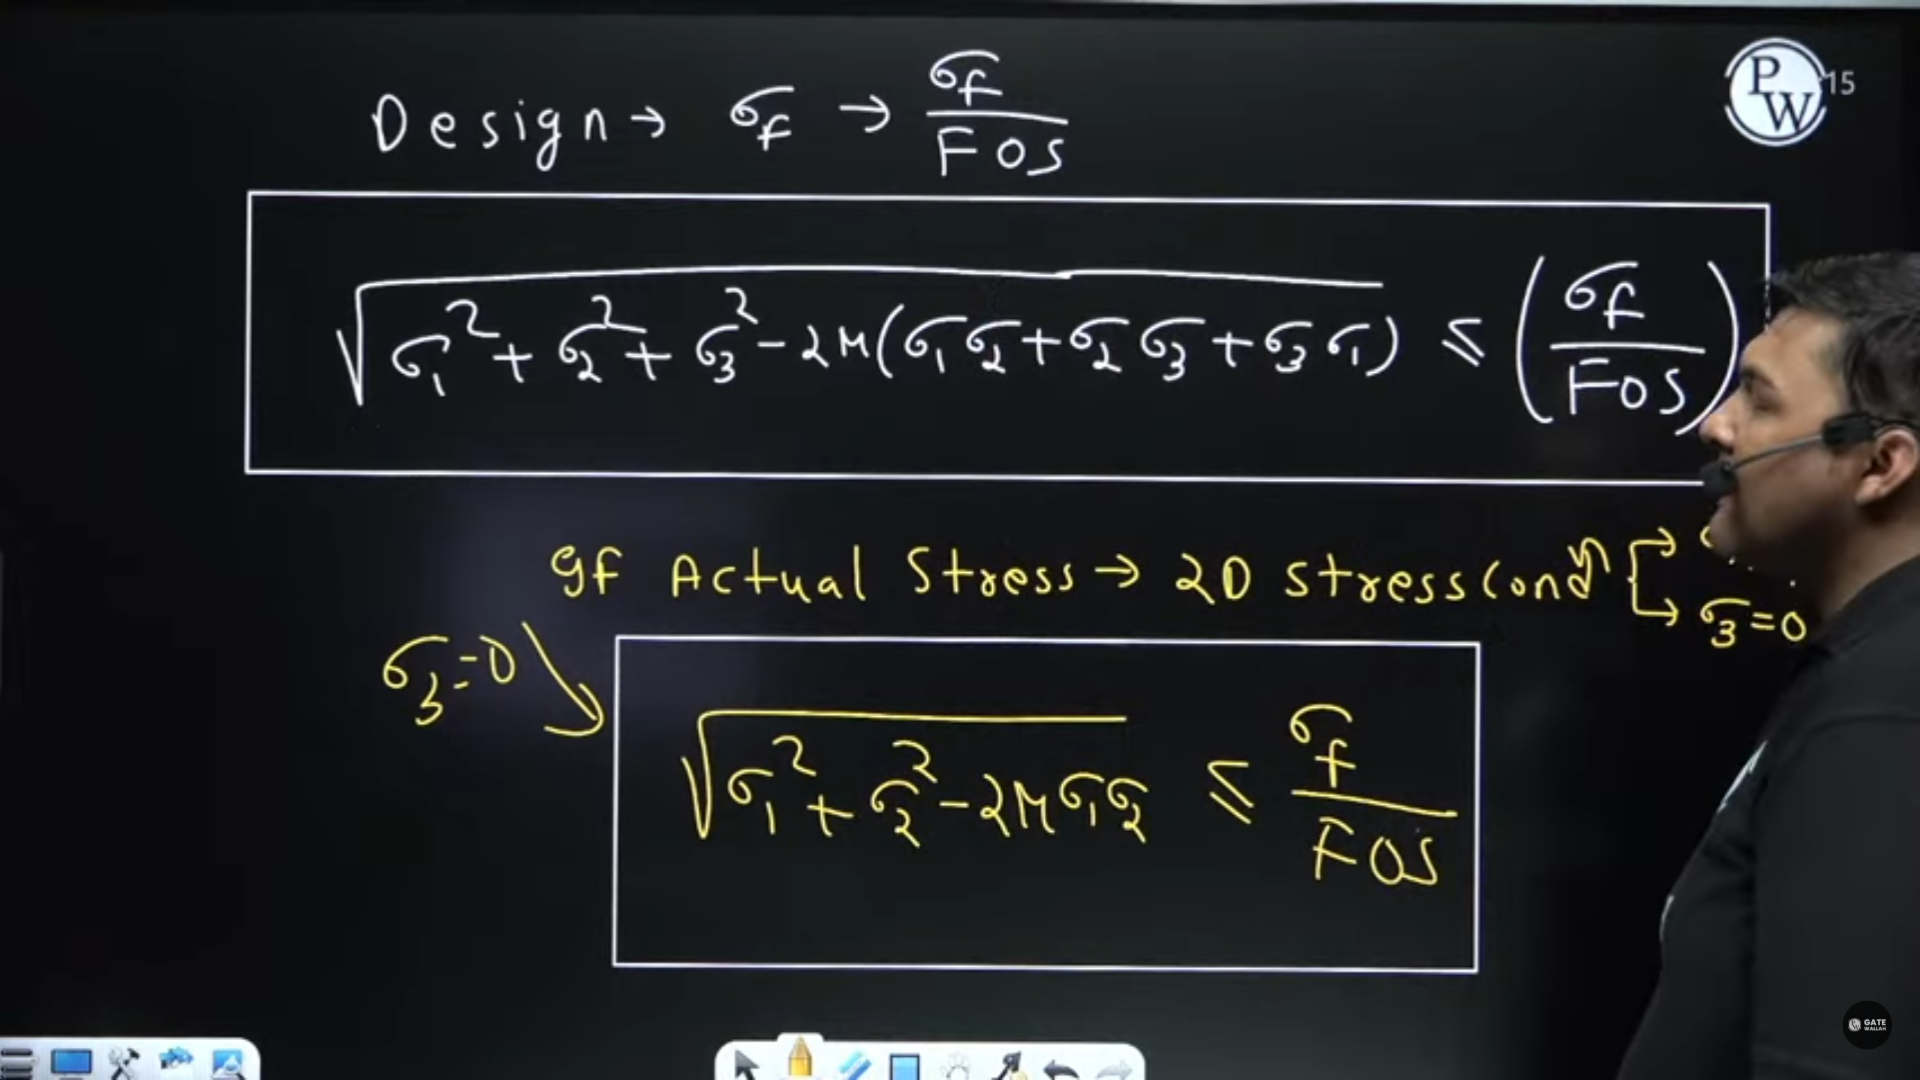 PW 15
Design → σf → σf/FOS
√(σ1² + σ2² + σ3² - 2μ(σ1σ2 + σ2σ3 + σ3σ1)) ≤ (σf/FOS)
If Actual Stress → 2D stress Condⁿ
σ3=0
σ3=0
√(σ1² + σ2² - 2μσ1σ2) ≤ σf/FOS
GATE
WALLAH